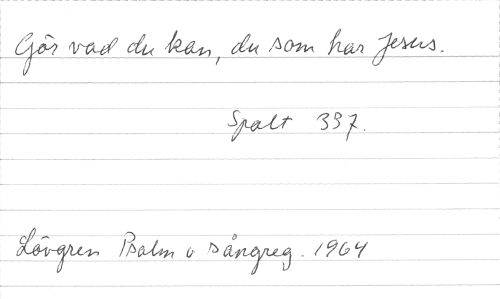 Gör vad du kan, du som har Jesus.
Spalt 337.
Lövgren Psalm o sångreg. 1964